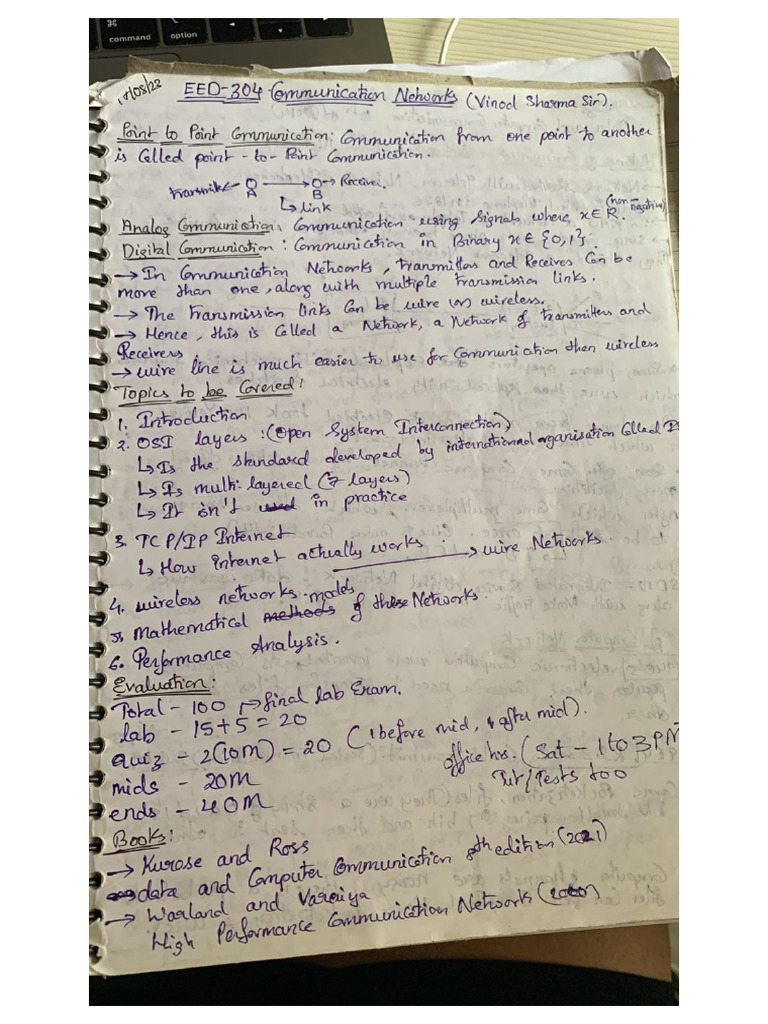 command option
17/08/23
EED-304 Communication Networks (Vinod Sharma Sir).
Point to Point Communication: Communication from one point to another
is Called point-to-Point Communication.
Transmit ← O → O → Receiver.
A B
↳ link
Analog Communication: Communication using Signals where x ∈ R. (non negative)
Digital Communication: Communication in Binary x ∈ {0,1}.
→ In Communication Networks, transmitters and Receives Can be
more than one, along with multiple transmission links.
→ The transmission links Can be wire (or) wireless.
→ Hence, this is Called a Network, a Network of transmitters and
Receivers
→ wire line is much easier to use for Communication then wireless
Topics to be Covered:
1. Introduction
2. OSI layers: (Open System Interconnection)
↳ Is the standard developed by international organisation Called
↳ Is multi-layered (7 layers)
↳ It isn't used in practice
3. TCP/IP Internet
↳ How internet actually works → wire Networks.
4. wireless networks.
5. Mathematical methods models of these Networks.
6. Performance Analysis.
Evaluation:
Total - 100 → final lab Exam.
lab - 15+5 = 20
quiz - 2(10M) = 20 (1 before mid, 1 after mid).
mids - 20M
ends - 40M
office hrs. (Sat - 1 to 3 PM
Tut/Tests too
Books:
→ Kurose and Ross
data and Computer Communication 8th edition (2021)
→ Warland and Varaiya
High Performance Communication Networks (2000)